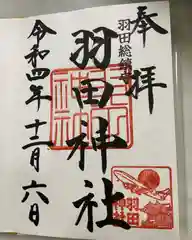 奉拝
羽田総鎮守
羽田神社
令和四年十二月六日
羽田
神社